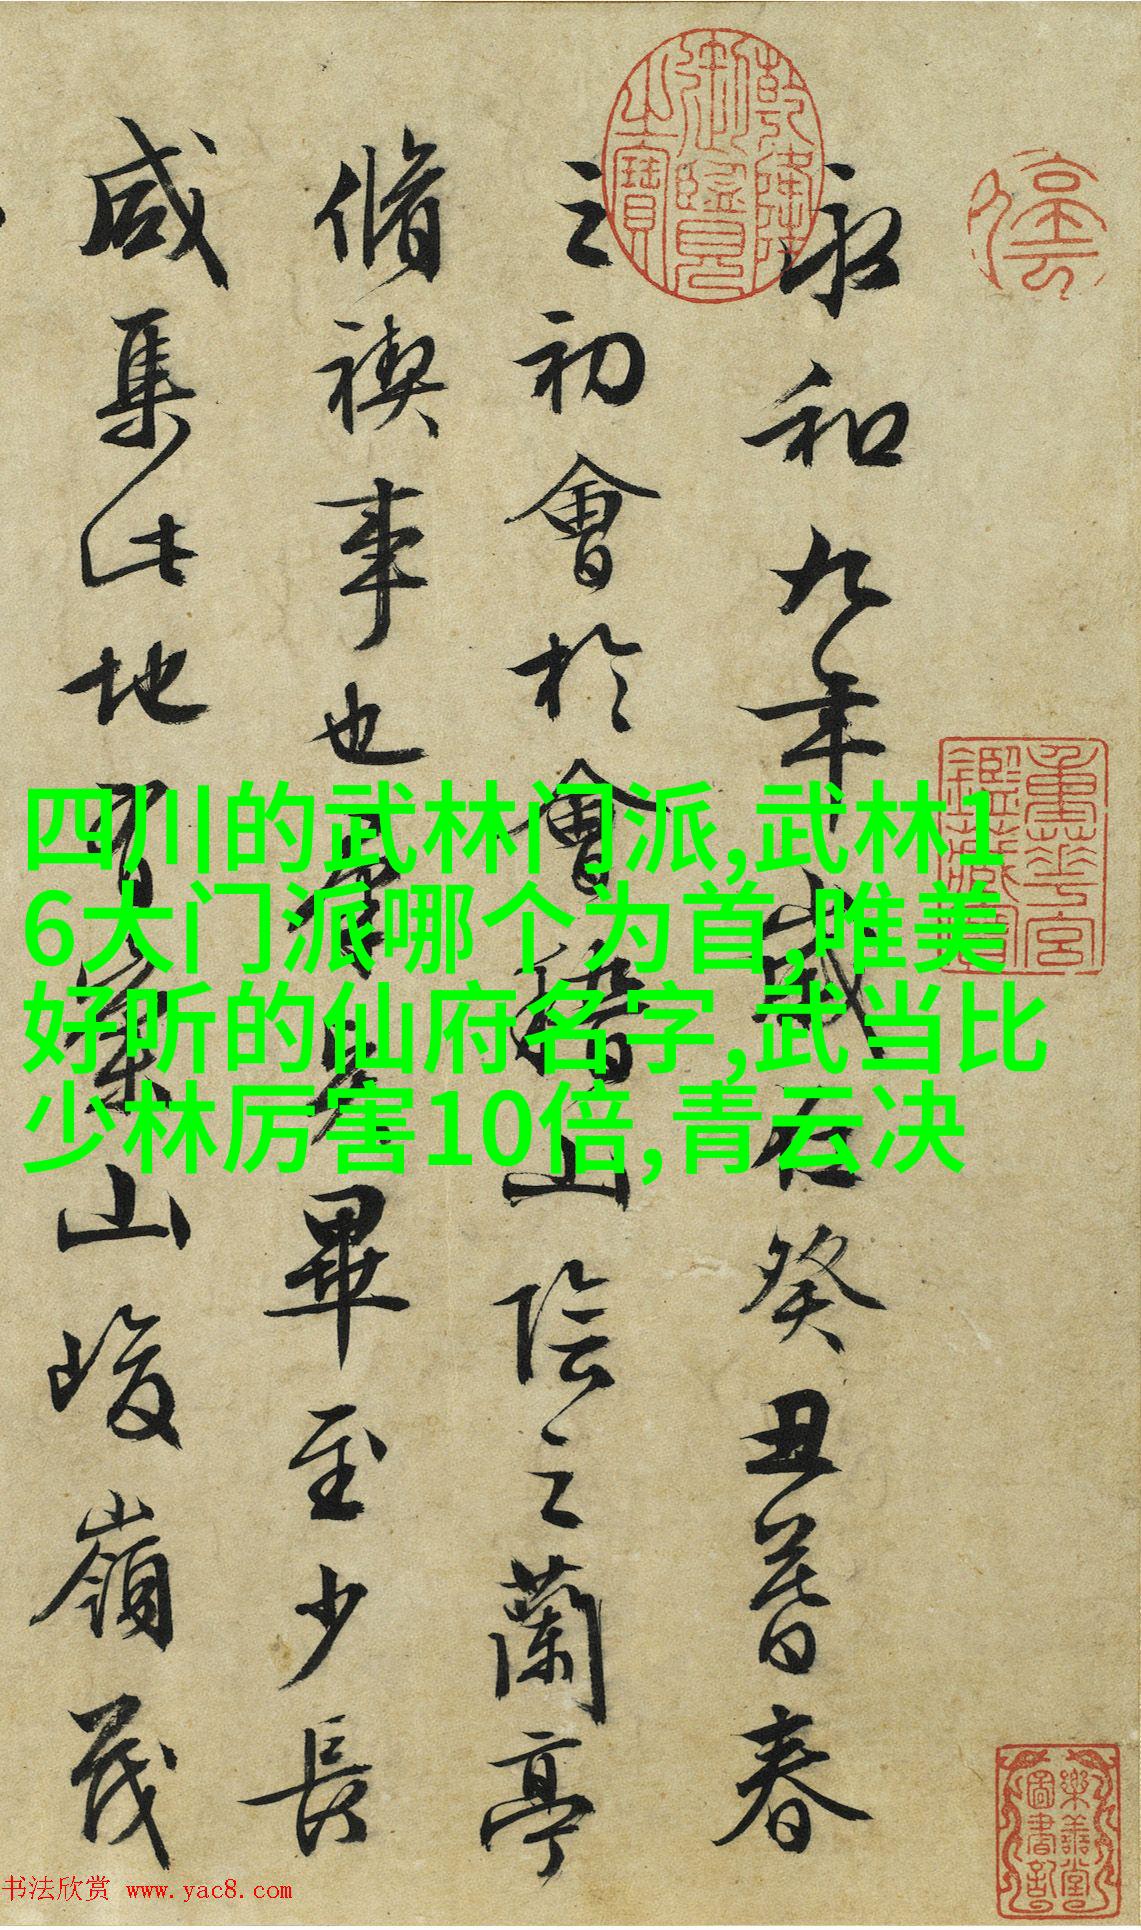 停雲
乾隆御覽之寶
永和九年歲在癸丑暮春
之初會於會稽山陰之蘭亭
脩禊事也羣賢畢至少長
咸集此地有崇山峻嶺茂
重華宮鑑藏寶
樂善堂圖書記
四川的武林门派,武林1
6大门派哪个为首,唯美
好听的仙府名字,武当比
少林厉害10倍,青云决
书法欣赏 www.yac8.com